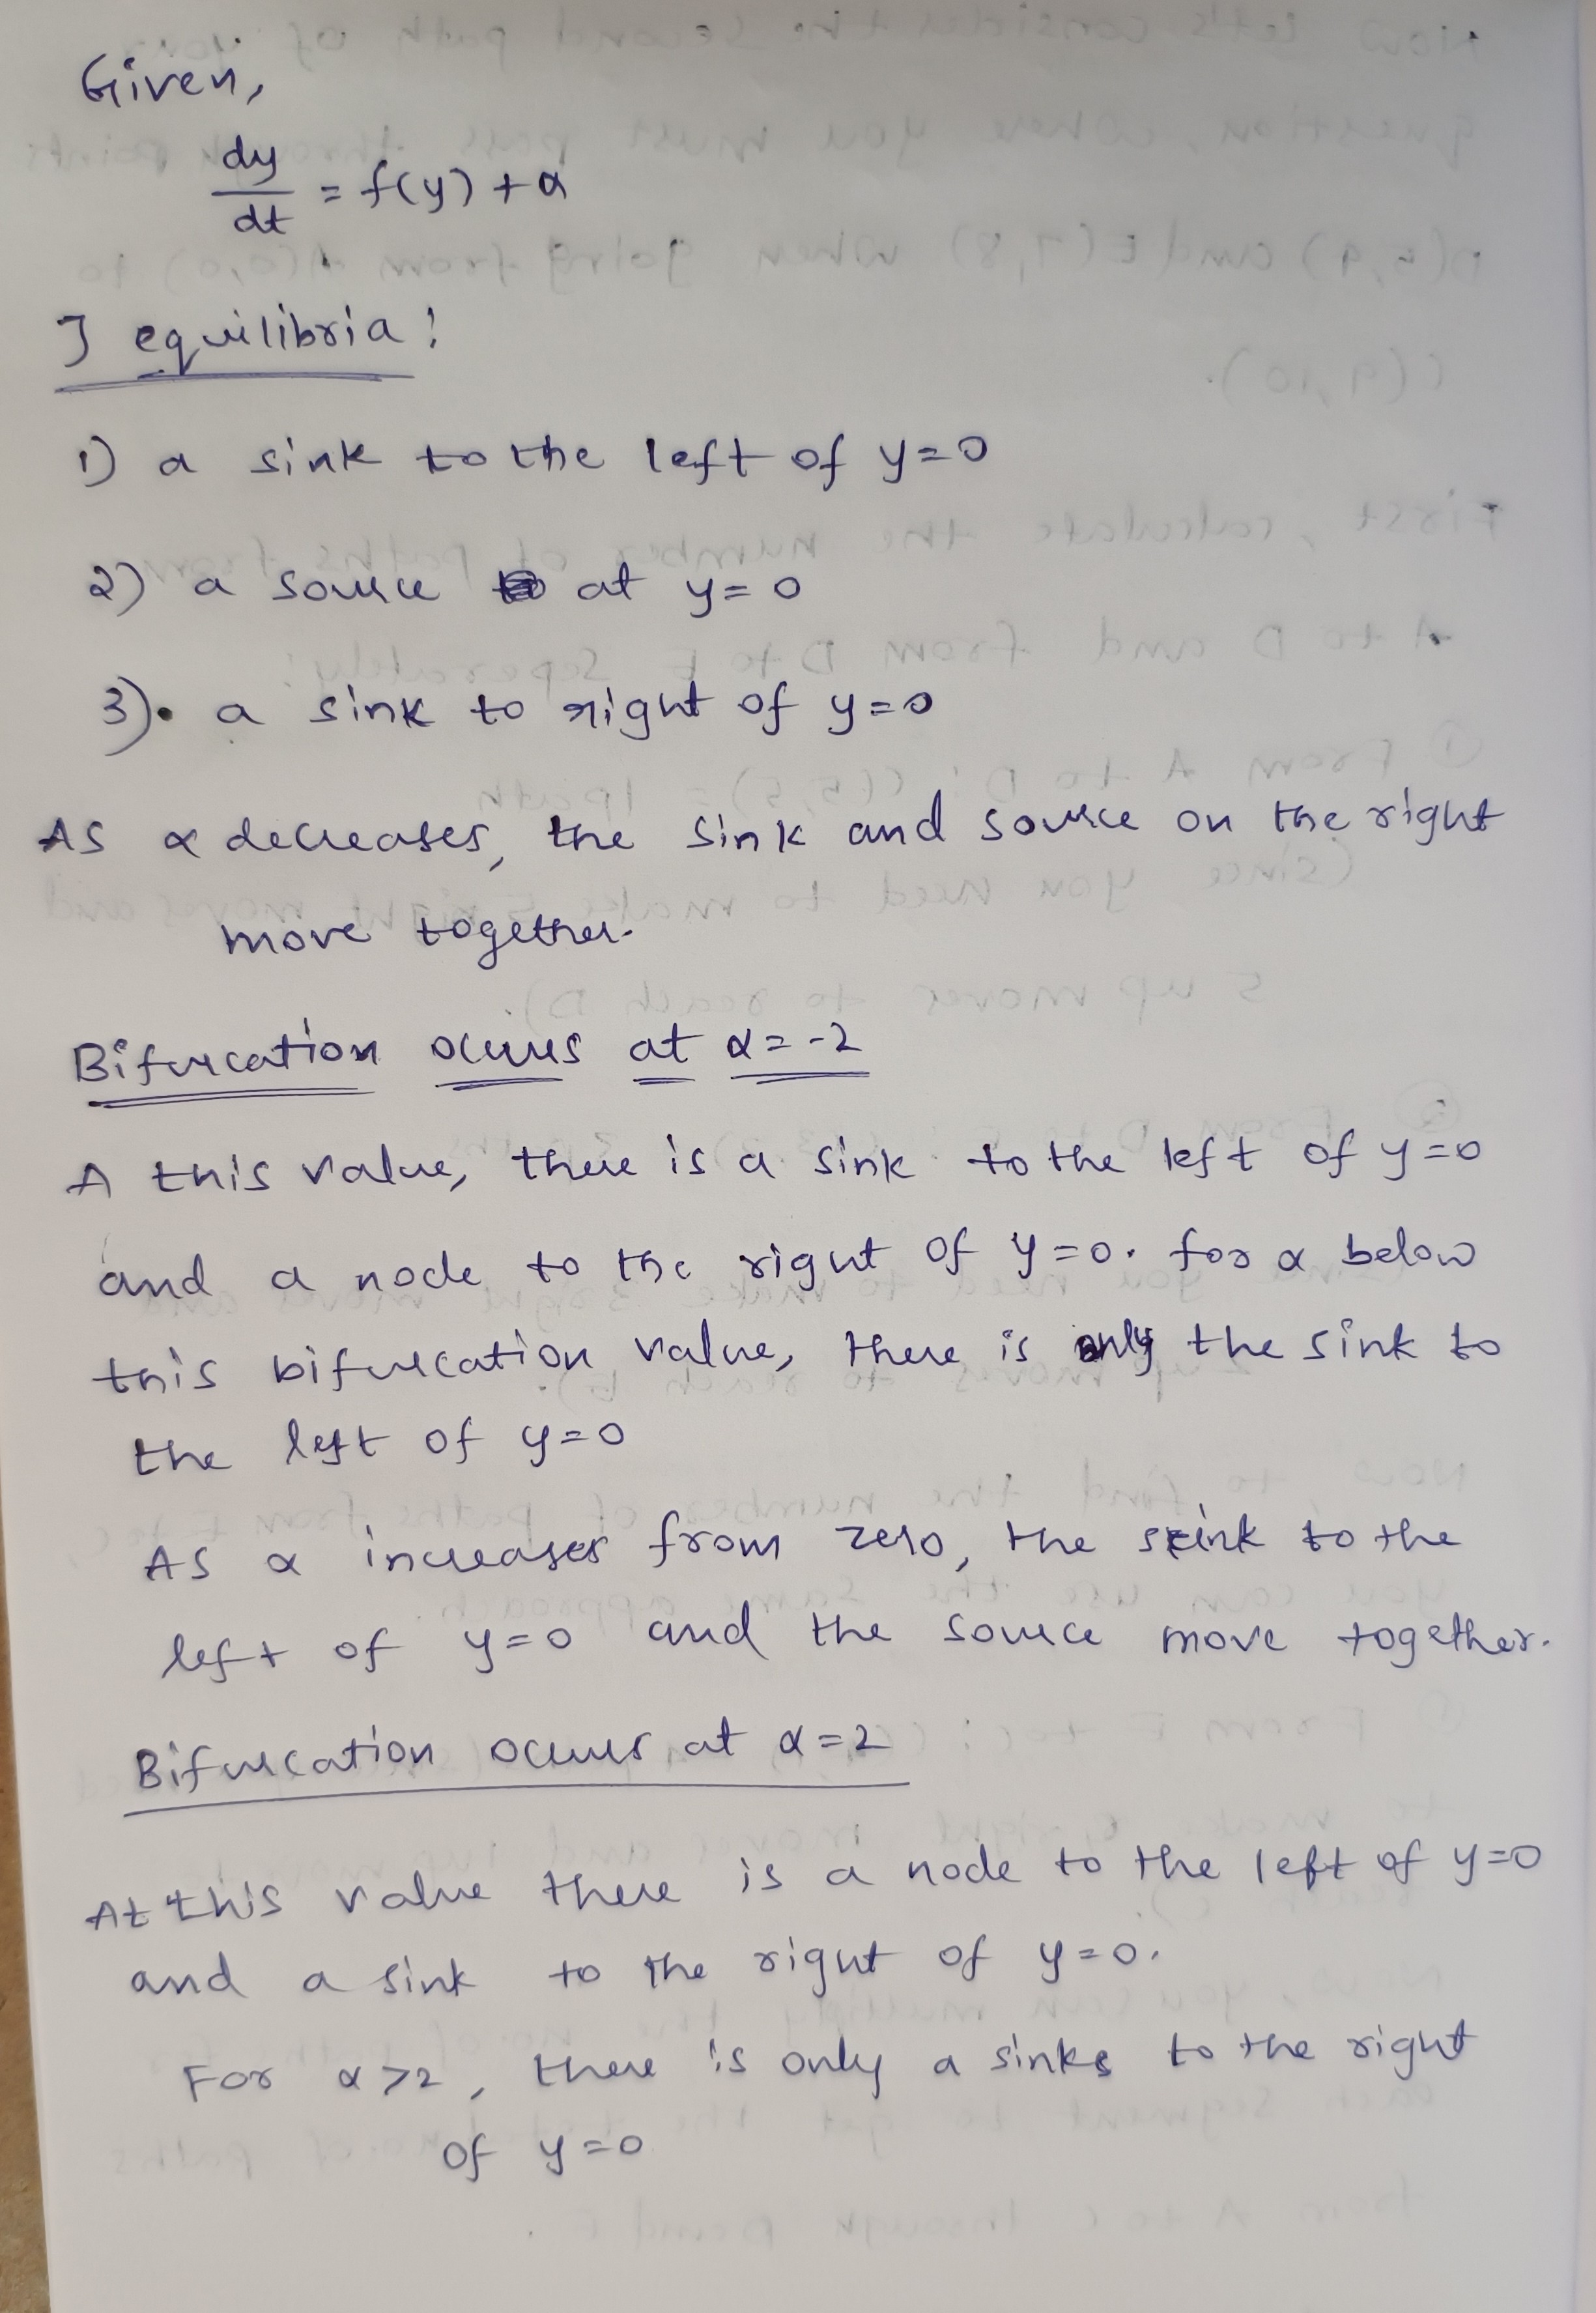 Given,
dy/dt = f(y) + α
3 equilibria:
1) a sink to the left of y=0
2) a source at y=0
3). a sink to right of y=0
As α decreases, the sink and source on the right
move together.
Bifurcation occurs at α=-2
A this value, there is a sink to the left of y=0
and a node to the right of y=0. for α below
this bifurcation value, there is only the sink to
the left of y=0
As α increases from zero, the sink to the
left of y=0 and the source move together.
Bifurcation occurs at α=2
At this value there is a node to the left of y=0
and a sink to the right of y=0.
For α>2, there is only a sinks to the right
of y=0